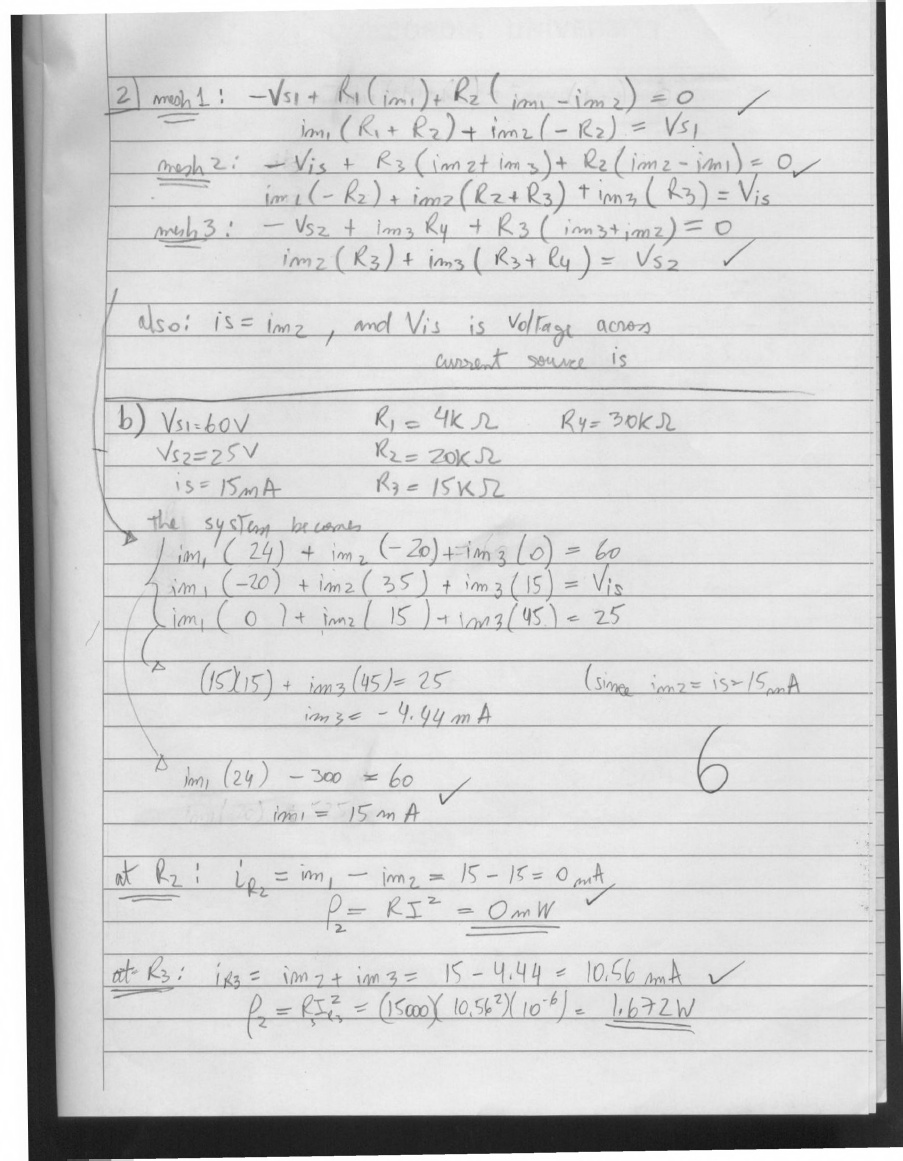 2) mesh 1: -Vs1 + R1(im1) + R2(im1 - im2) = 0 ✓
im1(R1 + R2) + im2(-R2) = Vs1
mesh 2: - Vis + R3(im2 + im3) + R2(im2 - im1) = 0 ✓
im1(-R2) + im2(R2 + R3) + im3(R3) = Vis
mesh 3: - Vs2 + im3 R4 + R3(im3 + im2) = 0
im2(R3) + im3(R3 + R4) = Vs2 ✓
also: is = im2, and Vis is voltage across
current source is
b) Vs1=60V R1 = 4KΩ R4 = 30KΩ
Vs2=25V R2 = 20KΩ
is = 15mA R3 = 15KΩ
the system becomes
im1(24) + im2(-20) + im3(0) = 60
im1(-20) + im2(35) + im3(15) = Vis
im1(0) + im2(15) + im3(45) = 25
(15)(15) + im3(45) = 25 (since im2 = is = 15mA
im3 = -4.44 mA
6
im1(24) - 300 = 60
im1 = 15 mA ✓
at R2: iR2 = im1 - im2 = 15 - 15 = 0 mA
P2 = RI² = 0mW ✓
at R3: iR3 = im2 + im3 = 15 - 4.44 = 10.56 mA ✓
= (15000)(10.56²)(10⁻⁶) = 1.672W